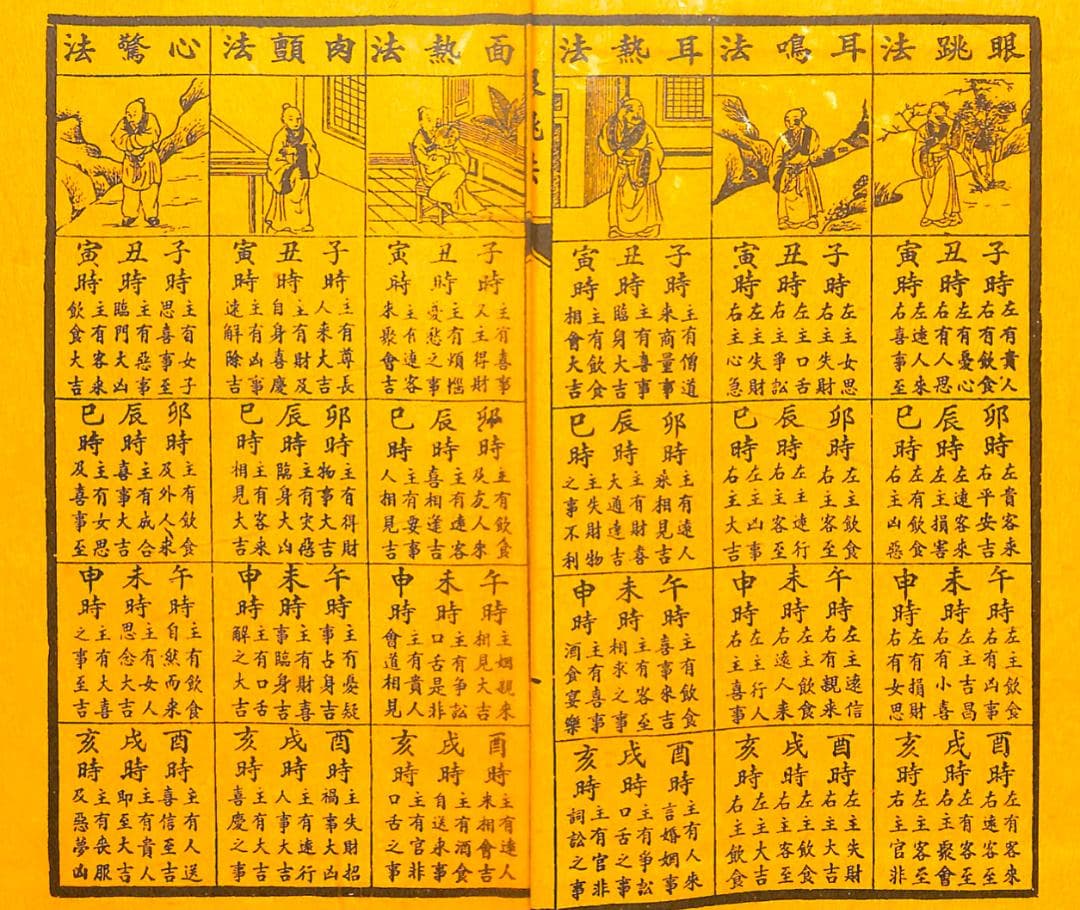 眼跳法
子時 左有貴人 右有飲食
丑時 左有憂心 右有人思
寅時 左遠人來 右喜事至
卯時 左貴客來 右平安吉
辰時 左遠客來 右主損害
巳時 左有飲食 右主凶惡
午時 左主飲食 右有凶事
未時 左主吉昌 右有小喜
申時 左有損財 右有女思
酉時 左有客來 右遠客至
戌時 左有客至 右主聚會
亥時 左主客至 右主官非
耳鳴法
子時 左主女思 右主失財
丑時 左主口舌 右主爭訟
寅時 左主失財 右主心急
卯時 左主飲食 右主客至
辰時 左主遠行 右主客至
巳時 左主凶事 右主大吉
午時 左主遠信 右有親來
未時 右遠人來
申時 左主行人 右主喜事
酉時 左主失財 右主大吉
戌時 左主飲食 右主客至
亥時 左主大吉 右主飲食
耳熱法
子時 主有僧道來商量事
丑時 主有喜事臨身大吉
寅時 主有飲食相會大吉
卯時 主有遠人來相見吉
辰時 主有財喜大通達吉
巳時 主失財物之事不利
午時 主有飲食喜事來吉
未時 主有客至相求之事
申時 主有喜事酒食宴樂
酉時 主有人來言婚姻事
戌時 主有爭訟口舌之事
亥時 主有官非詞訟之事
面熱法
子時 主有喜事又主得財
丑時 主有煩惱憂愁之事
寅時 主有遠客來聚會吉
卯時 主有飲食及友人來
辰時 主有遠客喜相逢吉
巳時 主有要事人相見吉
午時 主姻親來相見大吉
未時 主有爭訟口舌是非
申時 主有貴人會道相見
酉時 主有遠人來相會吉
戌時 主有酒食自送來事
亥時 主有官非口舌之事
肉顫法
子時 主有尊長人來大吉
丑時 主有財及自身喜慶
寅時 主有凶事速解除吉
卯時 主有得財物事大吉
辰時 主有災惡臨身大凶
巳時 主有客來相見大吉
午時 主有憂疑事占身吉
未時 主有財喜事臨身吉
申時 主有口舌解之大吉
酉時 主失財招禍事大凶
戌時 主有遠行人事大吉
亥時 主有大吉喜慶之事
心驚法
子時 主有女子思喜事至
丑時 主有惡事臨門大凶
寅時 主有客來飲食大吉
卯時 主有飲食及外人來
辰時 主有成合喜事大吉
巳時 主有女思及喜事至
午時 主有飲食自然而來
未時 主有女人思念大吉
申時 主有大喜之事至吉
酉時 主有人送喜信至吉
戌時 主有貴人即至大吉
亥時 主有喪服及惡夢凶